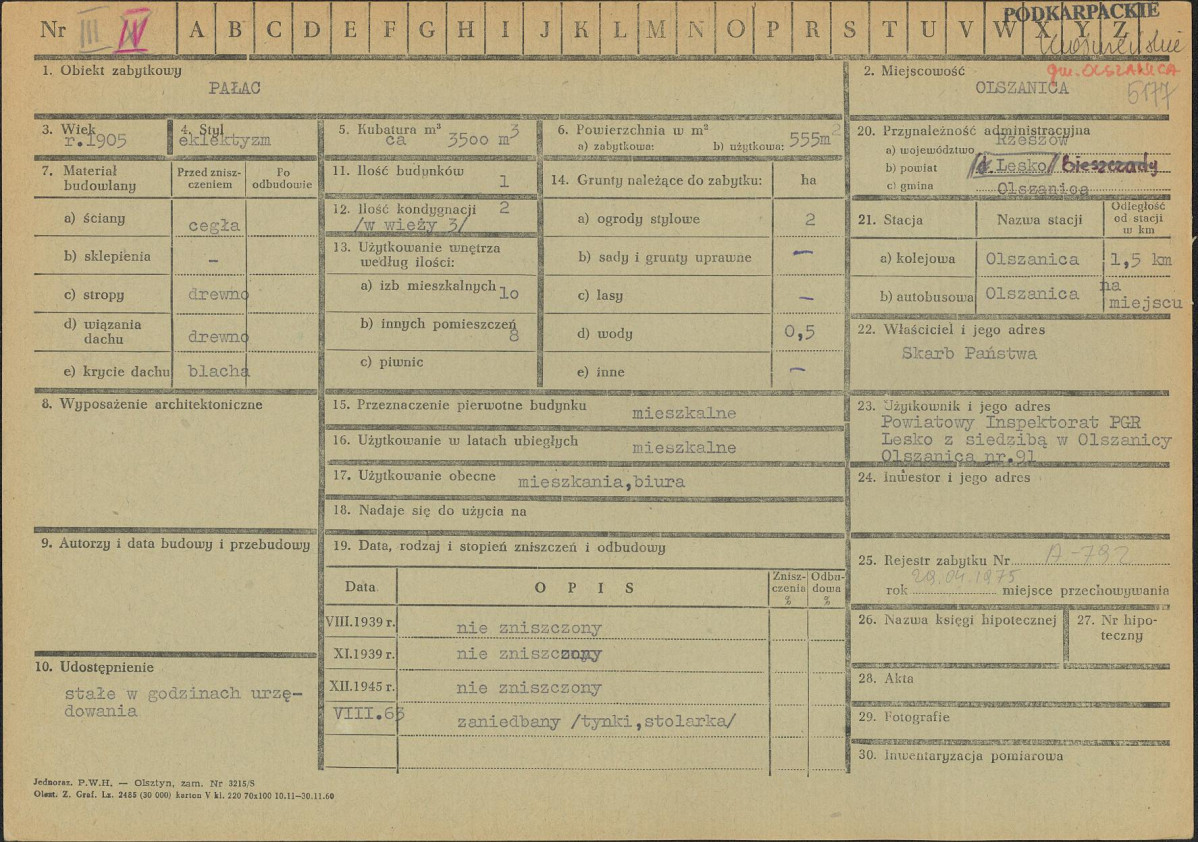 Nr III IV A B C D E F G H I J K L M N O P R S T U V W X Y Z
PODKARPACKIE
gm. OLSZANICA
5177
1. Obiekt zabytkowy
PAŁAC
2. Miejscowość
OLSZANICA
3. Wiek
r.1905
4. Styl
eklektyzm
5. Kubatura m³
ca 35oo m³
6. Powierzchnia w m²
a) zabytkowa: b) użytkowa: 555m²
7. Materiał budowlany
Przed znisz-
czeniem
Po
odbudowie
a) ściany cegła
b) sklepienia –
c) stropy drewno
d) wiązania
dachu drewno
e) krycie dachu blacha
8. Wyposażenie architektoniczne
9. Autorzy i data budowy i przebudowy
10. Udostępnienie
stałe w godzinach urzę-
dowania
11. Ilość budynków
1
12. Ilość kondygnacji 2
/w wieży 3/
13. Użytkowanie wnętrza
według ilości:
a) izb mieszkalnych 1o
b) innych pomieszczeń
8
c) piwnic
14. Grunty należące do zabytku: ha
a) ogrody stylowe 2
b) sady i grunty uprawne –
c) lasy –
d) wody 0,5
e) inne –
15. Przeznaczenie pierwotne budynku mieszkalne
16. Użytkowanie w latach ubiegłych mieszkalne
17. Użytkowanie obecne mieszkania,biura
18. Nadaje się do użycia na
19. Data, rodzaj i stopień zniszczeń i odbudowy
Data O P I S Znisz-
czenia
% Odbu-
dowa
%
VIII.1939 r. nie zniszczony
XI.1939 r. nie zniszczony
XII.1945 r. nie zniszczony
VIII.63 zaniedbany /tynki,stolarka/
20. Przynależność administracyjna
a) województwo Rzeszów
b) powiat /d. Lesko/ Bieszczady
c) gmina Olszanica
21. Stacja Nazwa stacji Odległość
od stacji
w km
a) kolejowa Olszanica 1,5 km
b) autobusowa Olszanica na
miejscu
22. Właściciel i jego adres
Skarb Państwa
23. Użytkownik i jego adres
Powiatowy Inspektorat PGR
Lesko z siedzibą w Olszanicy
Olszanica nr.91
24. Inwestor i jego adres
25. Rejestr zabytku Nr A-792
rok 29.04.1975 miejsce przechowywania
26. Nazwa księgi hipotecznej
27. Nr hipo-
teczny
28. Akta
29. Fotografie
30. Inwentaryzacja pomiarowa
Jednoraz. P.W.H. — Olsztyn, zam. Nr 3215/S
Olszt. Z. Graf. Lz. 2485 (30 000) karton V kl. 220 70x100 10.11—30.11.60